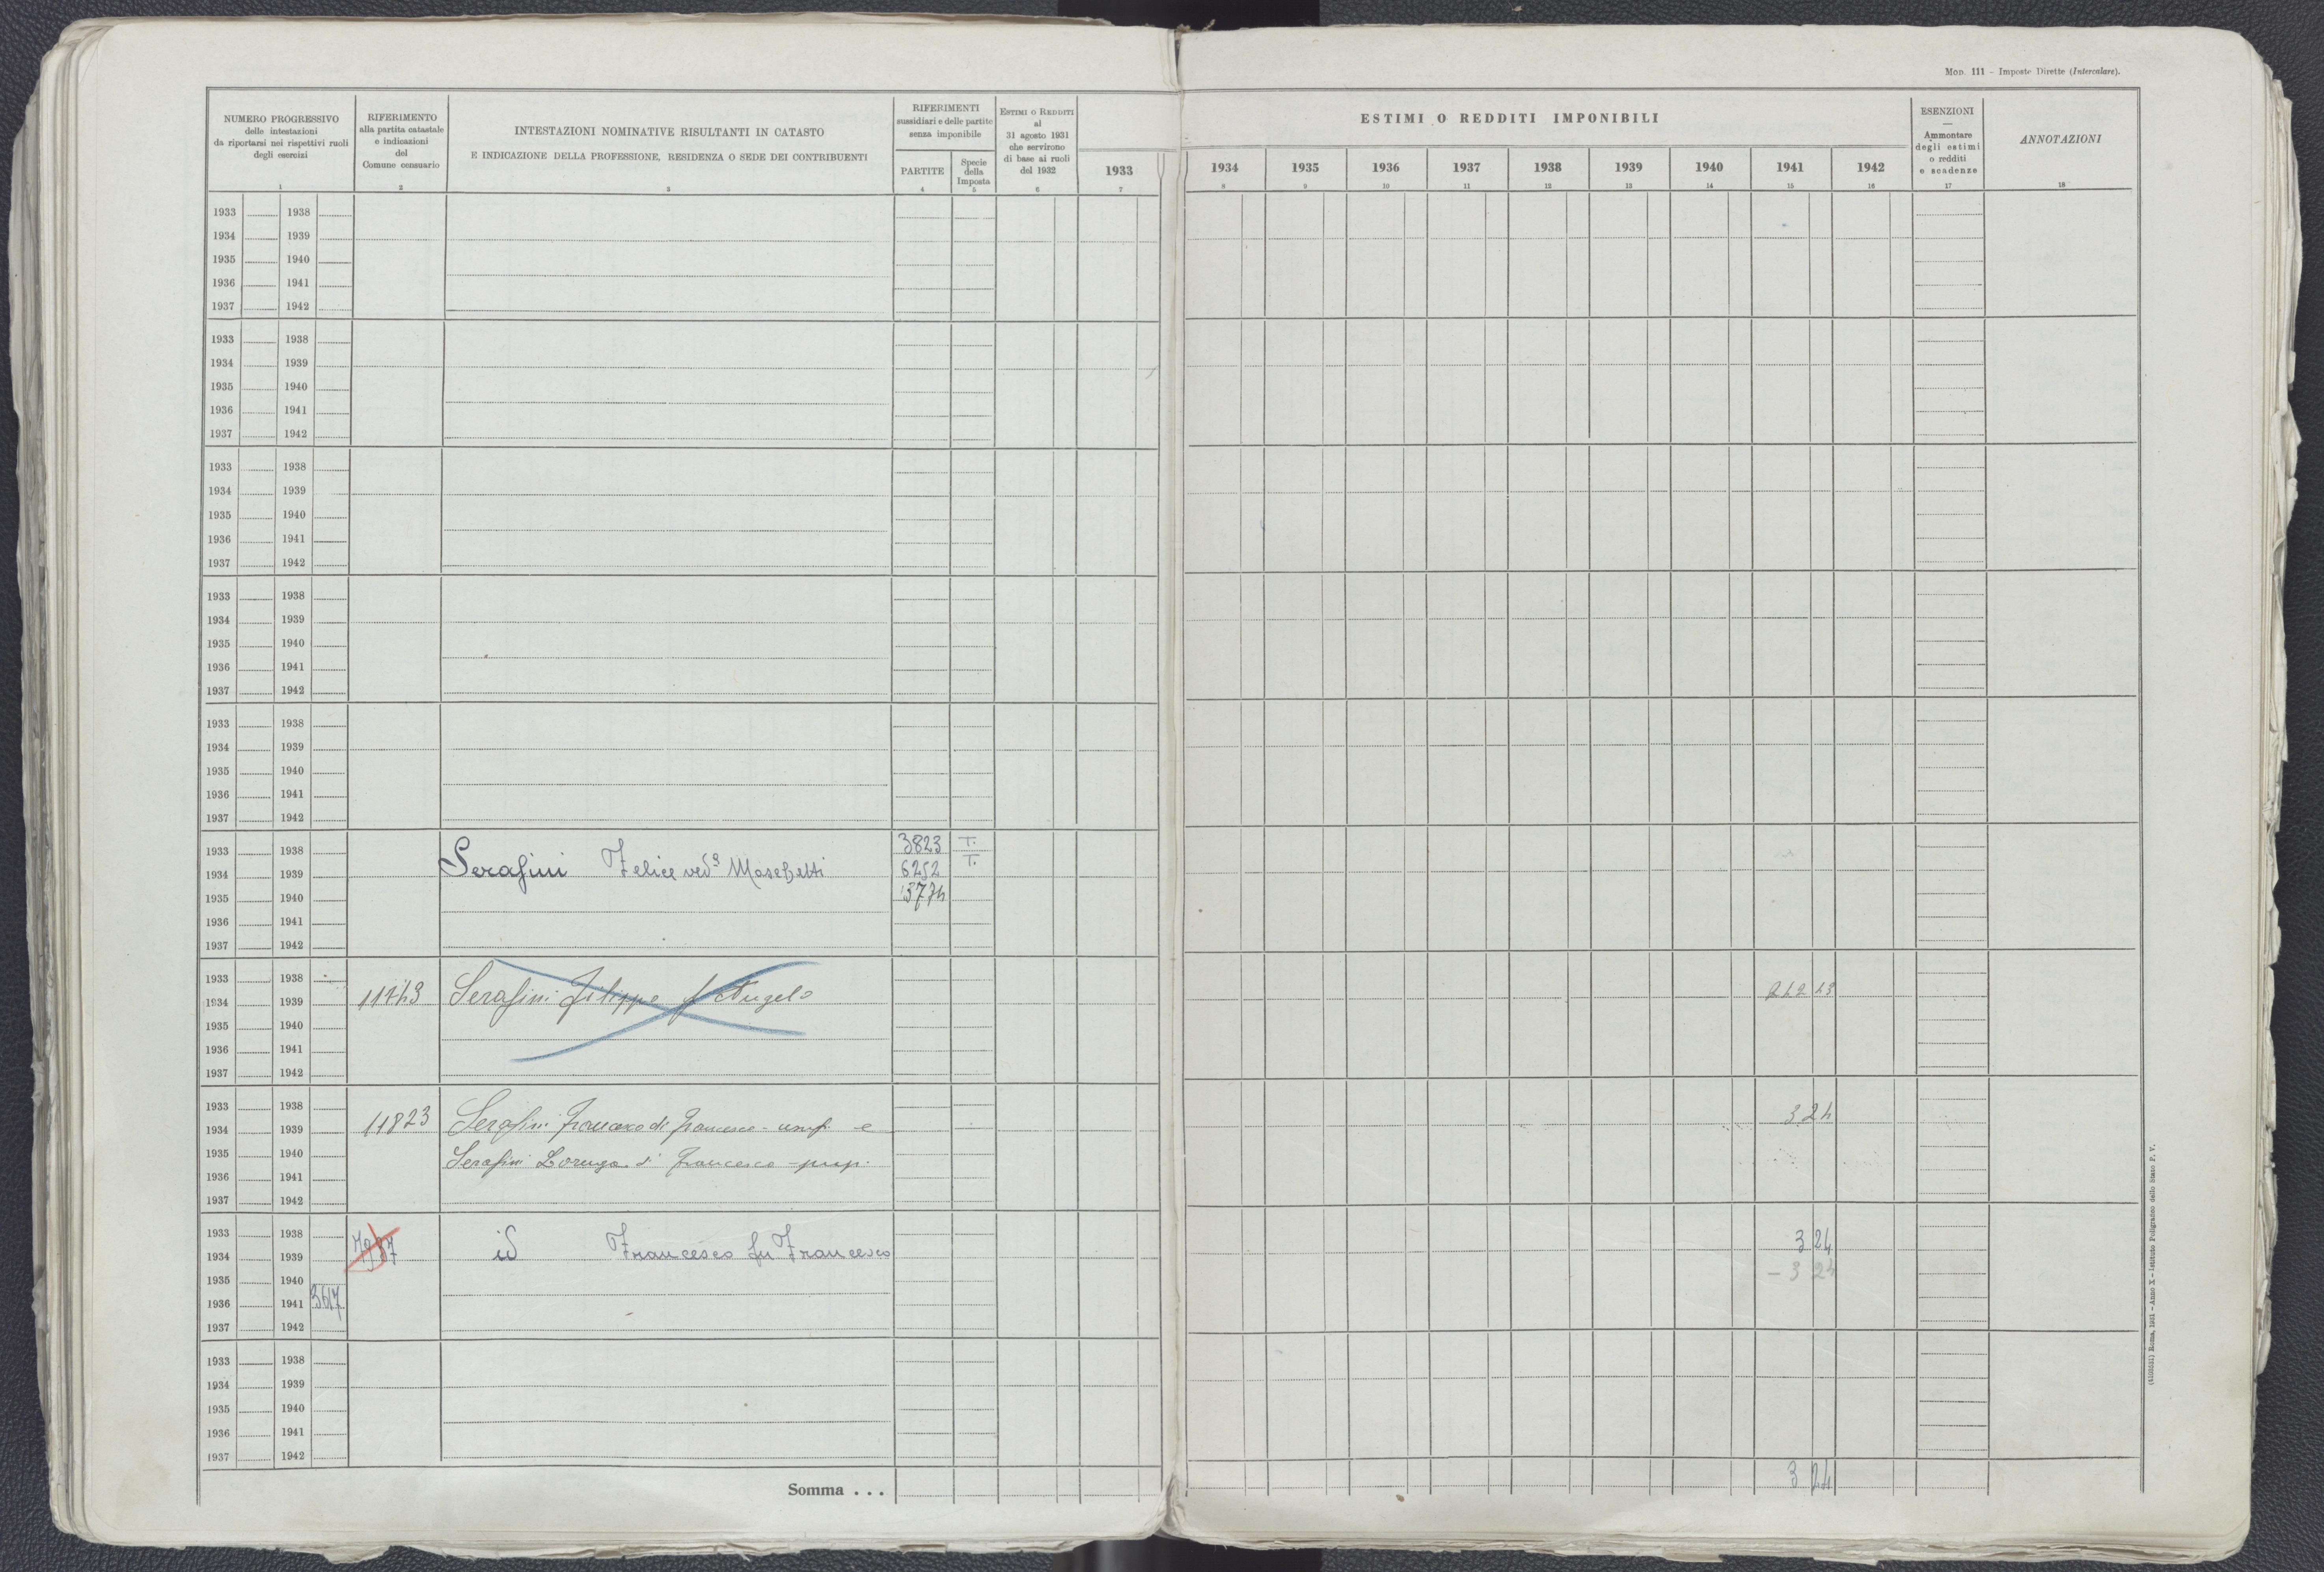 MOD. 111 – Imposte Dirette (Intercalare).
NUMERO PROGRESSIVO
delle intestazioni
da riportarsi nei rispettivi ruoli
degli esercizi
1
RIFERIMENTO
alla partita catastale
e indicazioni
del
Comune censuario
2
INTESTAZIONI NOMINATIVE RISULTANTI IN CATASTO
E INDICAZIONE DELLA PROFESSIONE, RESIDENZA O SEDE DEI CONTRIBUENTI
3
RIFERIMENTI
sussidiari e delle partite
senza imponibile
PARTITE
4
Specie
della
Imposta
5
ESTIMI O REDDITI
al
31 agosto 1931
che servirono
di base ai ruoli
del 1932
6
ESTIMI O REDDITI IMPONIBILI
1933 1934 1935 1936 1937 1938 1939 1940 1941 1942
7 8 9 10 11 12 13 14 15 16
ESENZIONI
—
Ammontare
degli estimi
o redditi
e scadenze
17
ANNOTAZIONI
18
1933 1938
1934 1939
1935 1940
1936 1941
1937 1942
1933 1938
1934 1939
1935 1940
1936 1941
1937 1942
1933 1938
1934 1939
1935 1940
1936 1941
1937 1942
1933 1938
1934 1939
1935 1940
1936 1941
1937 1942
1933 1938
1934 1939
1935 1940
1936 1941
1937 1942
1933 1938 3823 T.
1934 1939 Serafini Felice ved.ª Moschetti 6252 T.
1935 1940
1936 1941
1937 1942
1933 1938
1934 1939 Serafini Filippo f Angelo
1935 1940
1936 1941
1937 1942
1933 1938
1934 1939 11823 Serafini Francesco di Francesco - usuf. e 3 24
1935 1940 Serafini di Francesco - prop.
1936 1941
1937 1942
1933 1938
1934 1939 id Francesco fu Francesco 3 24
1935 1940 – 3 24
1936 1941
1937 1942
1933 1938
1934 1939
1935 1940
1936 1941
1937 1942
Somma . . . 3 24
Roma, 1931 – Anno X – Istituto Poligrafico dello Stato P. V.